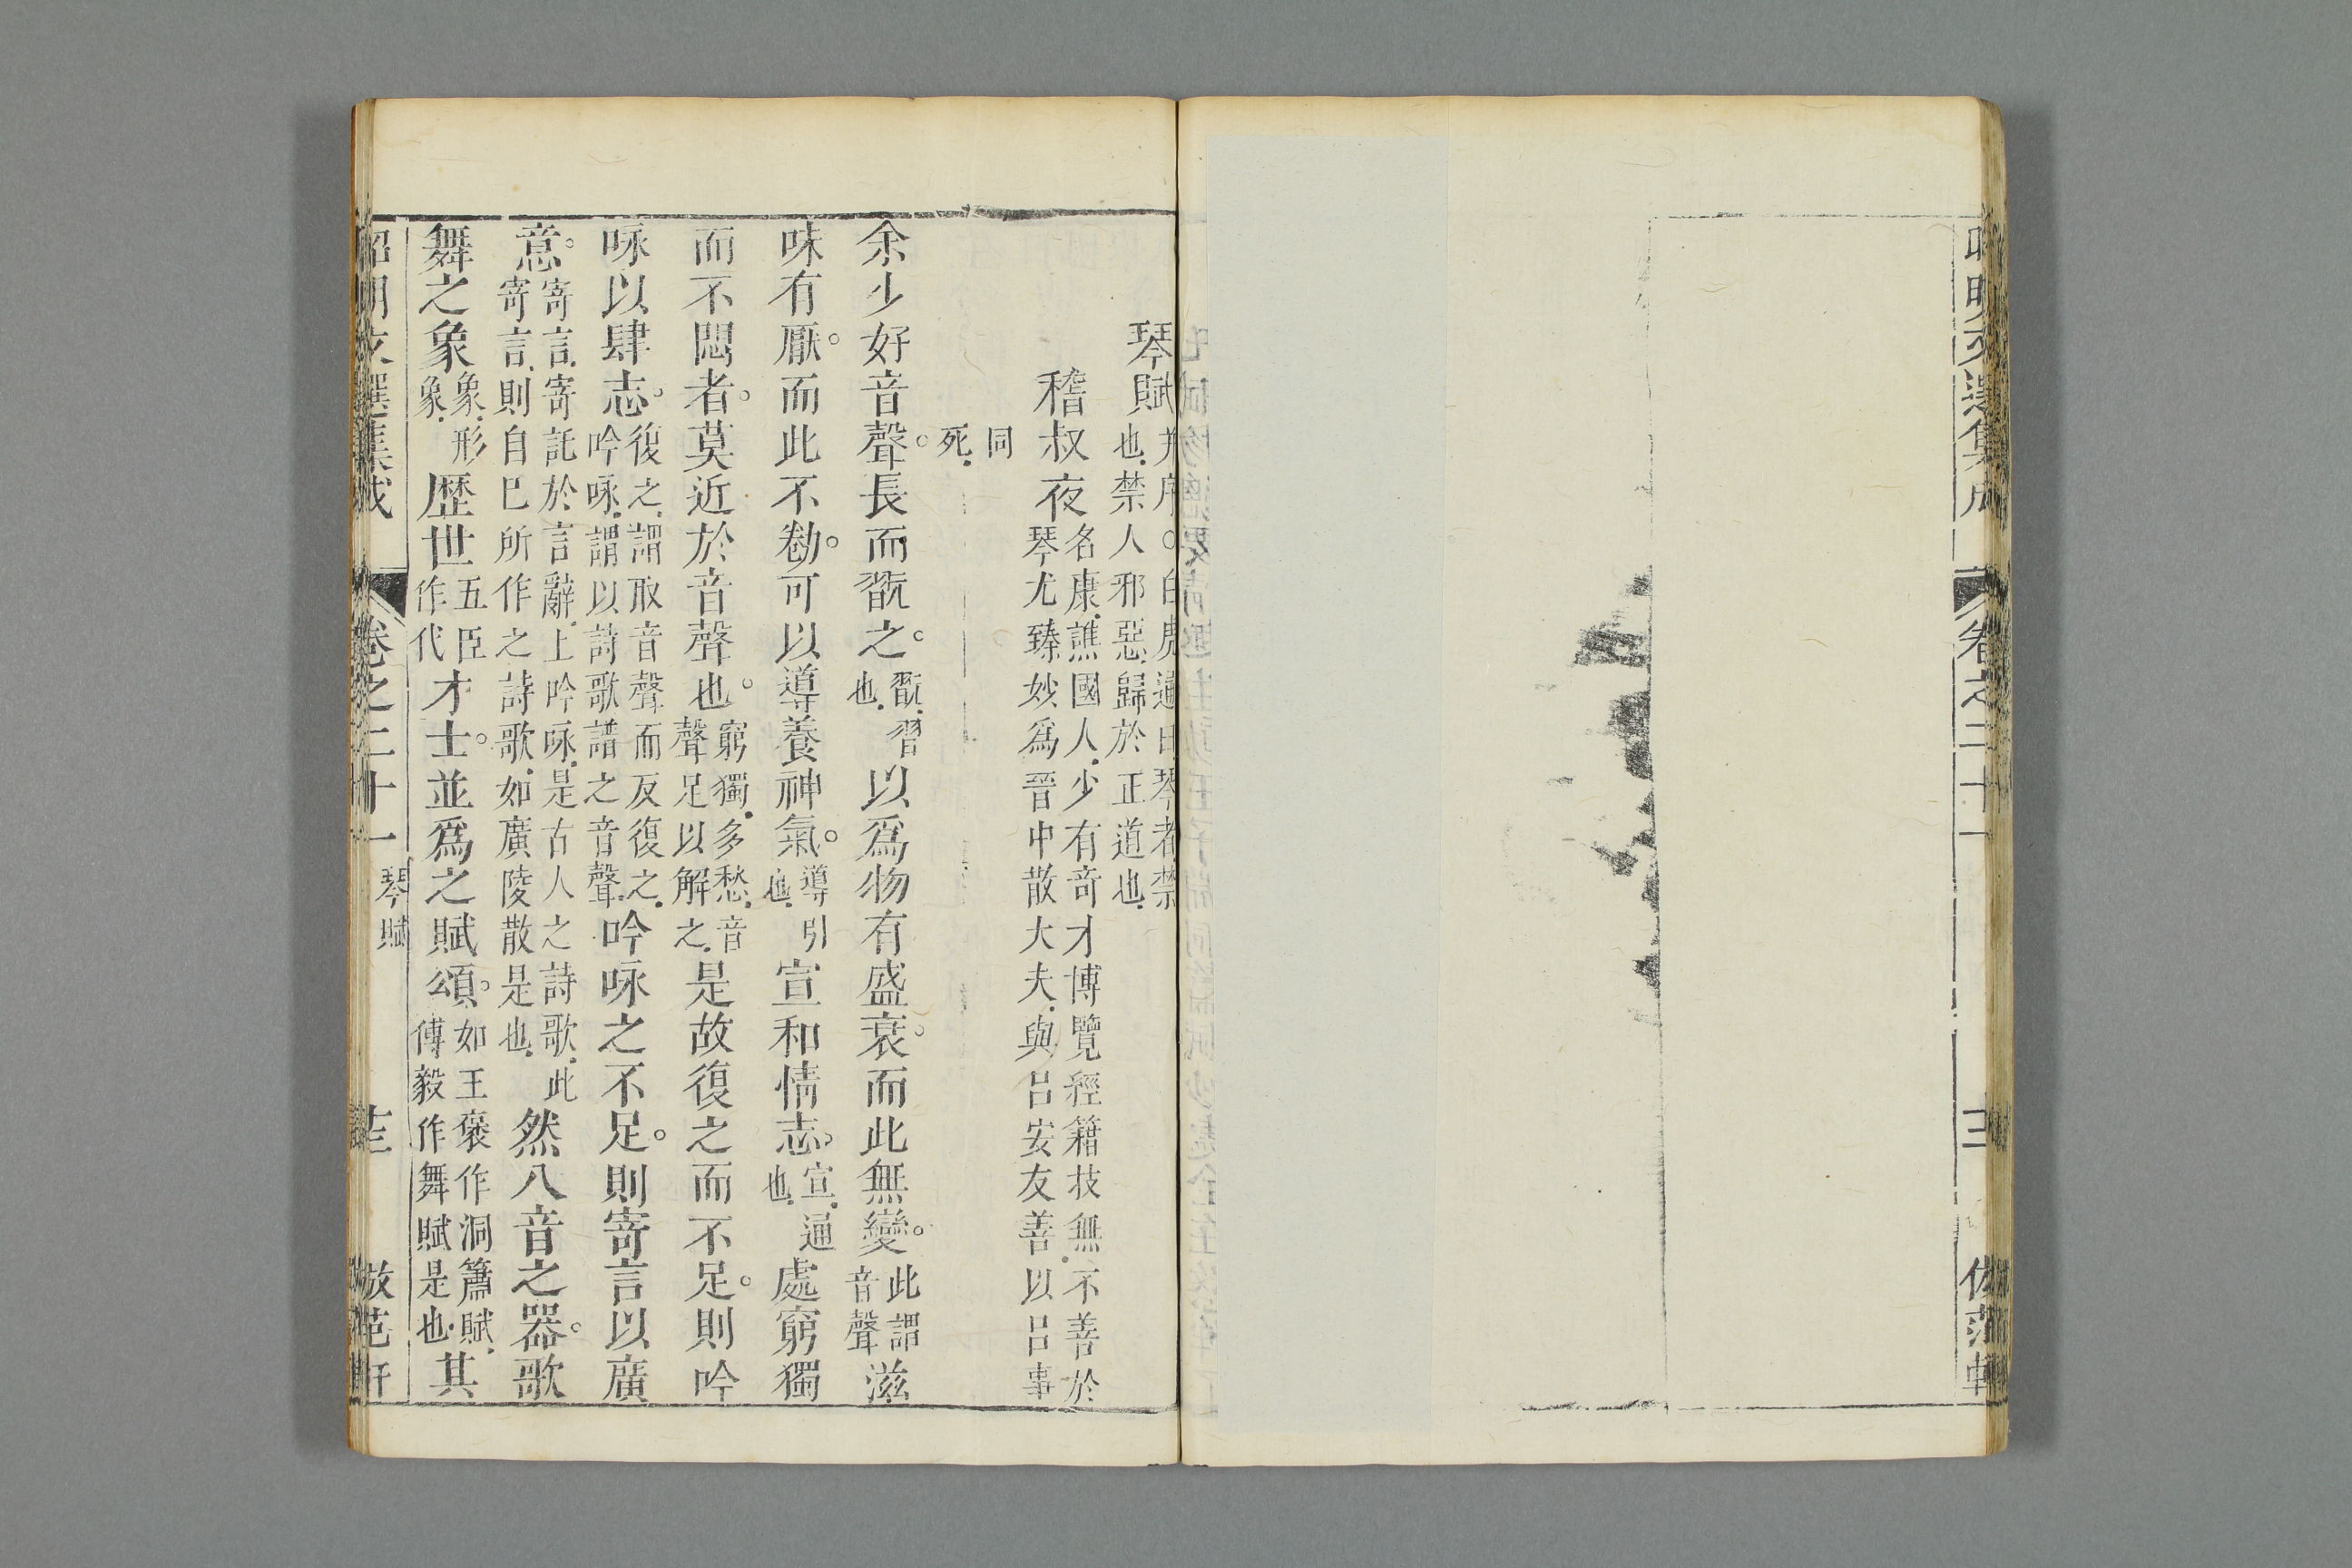 昭明文選集成 卷之二十一 三 倣范軒
琴賦并序。白虎通曰琴者禁也禁人邪惡歸於正道也
嵇叔夜名康譙國人少有奇才博覽經籍技無不善於琴尤臻妙爲晉中散大夫與呂安友善以呂事
同死
余少好音聲長而翫之翫習也以爲物有盛衰而此無變此謂音聲滋
味有厭而此不勌可以導養神氣導引也宣和情志宣通也處窮獨
而不悶者莫近於音聲也窮獨多愁音聲足以解之是故復之而不足則吟
咏以肆志復之謂取音聲而反復之吟咏謂以詩歌譜之音聲吟咏之不足則寄言以廣
意寄言寄託於言辭上吟咏是古人之詩歌此寄言則自巳所作之詩歌如廣陵散是也然八音之器歌
舞之象象形象歴世五臣作代才士並爲之賦頌如王褒作洞簫賦傅毅作舞賦是也其
昭明文選集成 卷之二十一 琴賦 十三 倣范軒